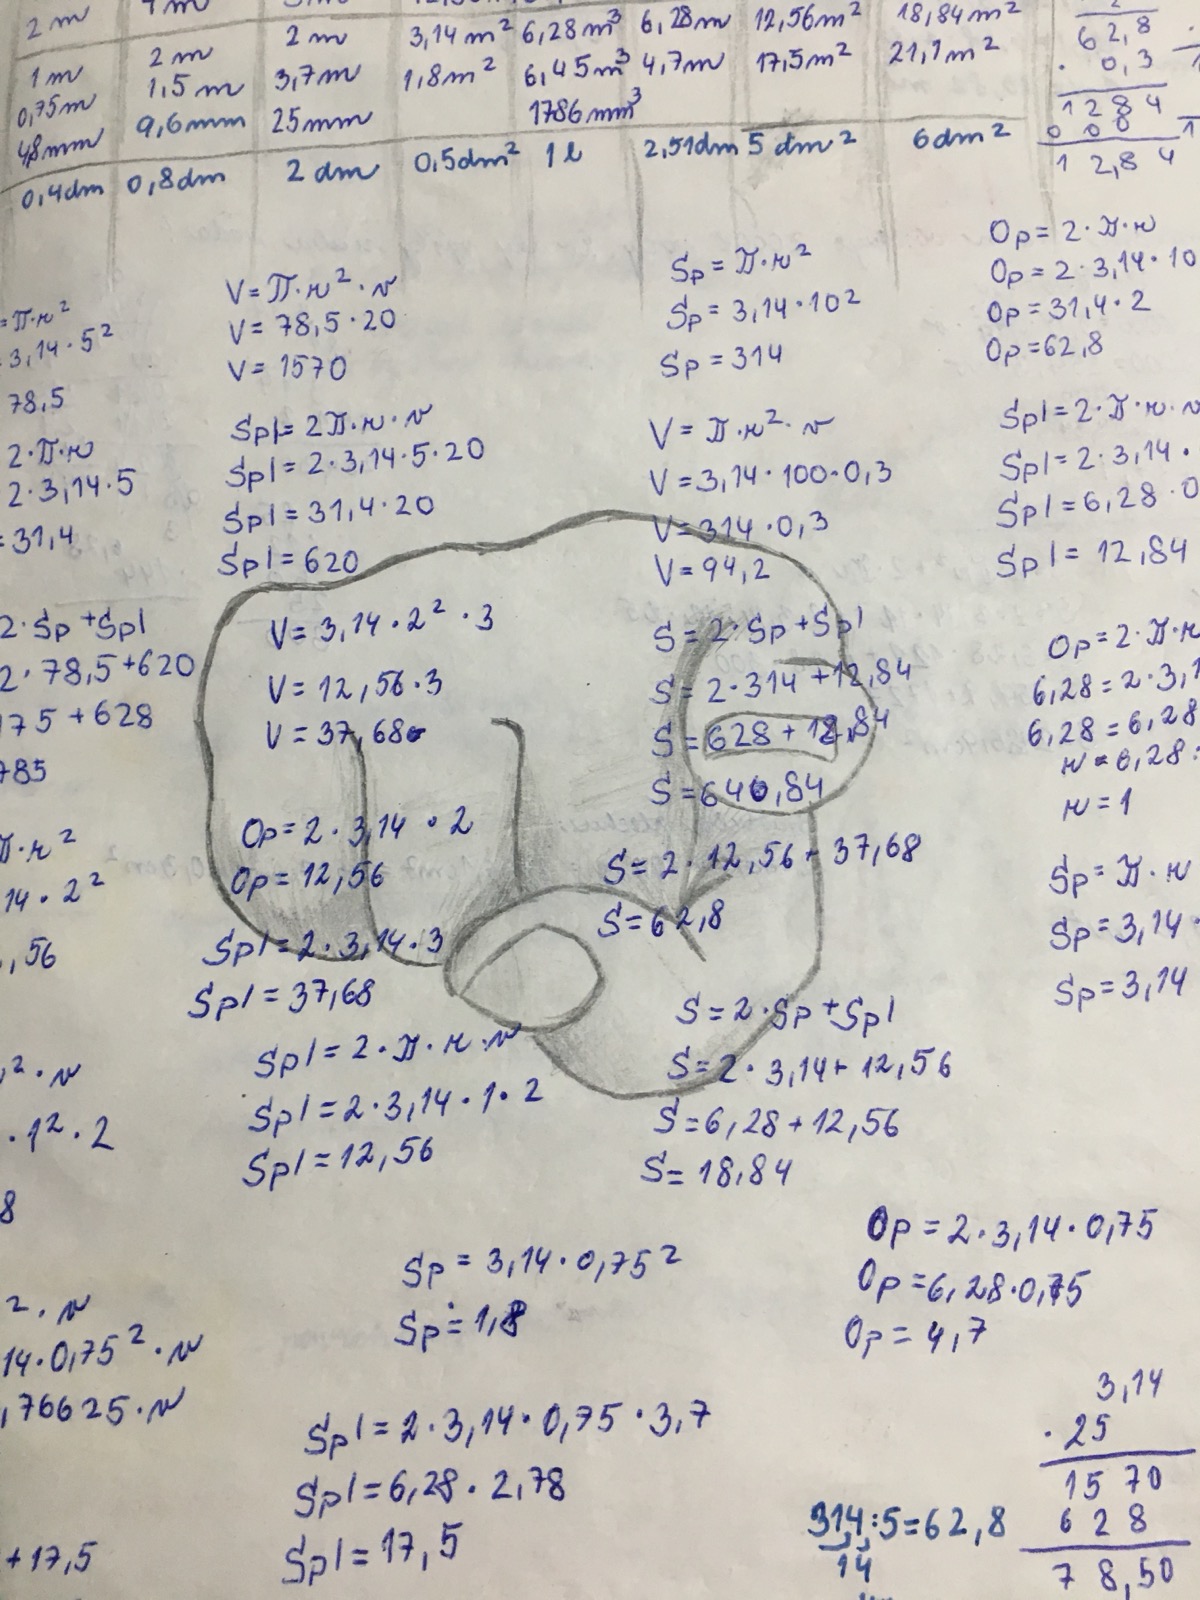 2 m
2 m 3,14 m² 6,28 m³ 6,28 m 12,56 m² 18,84 m²
1 m 2 m
0,75 m 1,5 m 3,7 m 1,8 m² 6,45 m³ 4,7 m 17,5 m² 21,1 m²
48 mm 9,6 mm 25 mm 1786 mm³
0,4 dm 0,8 dm 2 dm 0,5 dm² 1 l 2,51 dm 5 dm² 6 dm²
62,8
· 0,3
1284
000
12,84
= π·r²
3,14·5²
78,5
2·π·r
2·3,14·5
= 31,4
2·Sp + Spl
2·78,5+620
175 + 628
785
π·r²
14·2²
,56
²·v
·1²·2
8
²·v
14·0,75²·v
,76625·v
+17,5
V = π·r²·v
V = 78,5·20
V = 1570
Spl = 2π·r·v
Spl = 2·3,14·5·20
Spl = 31,4·20
Spl = 620
V = 3,14·2²·3
V = 12,56·3
V = 37,68
Op = 2·3,14·2
Op = 12,56
Spl = 2·3,14·3
Spl = 37,68
Spl = 2·π·r·v
Spl = 2·3,14·1·2
Spl = 12,56
Sp = 3,14·0,75²
Sp = 1,8
Spl = 2·3,14·0,75·3,7
Spl = 6,28·2,78
Spl = 17,5
Sp = π·r²
Sp = 3,14·10²
Sp = 314
V = π·r²·v
V = 3,14·100·0,3
V = 314·0,3
V = 94,2
S = 2·Sp + Spl
S = 2·314 + 12,84
S = 628 + 12,84
S = 640,84
S = 2·12,56 + 37,68
S = 62,8
S = 2·Sp + Spl
S = 2·3,14 + 12,56
S = 6,28 + 12,56
S = 18,84
Op = 2·π·r
Op = 2·3,14·10
Op = 31,4·2
Op = 62,8
Spl = 2·π·r·v
Spl = 2·3,14·
Spl = 6,28·0
Spl = 12,84
Op = 2·π·r
6,28 = 2·3,1
6,28 = 6,28
r = 6,28:
r = 1
Sp = π·r
Sp = 3,14·
Sp = 3,14
Op = 2·3,14·0,75
Op = 6,28·0,75
Op = 4,7
3,14
·25
1570
628
78,50
314:5=62,8
14